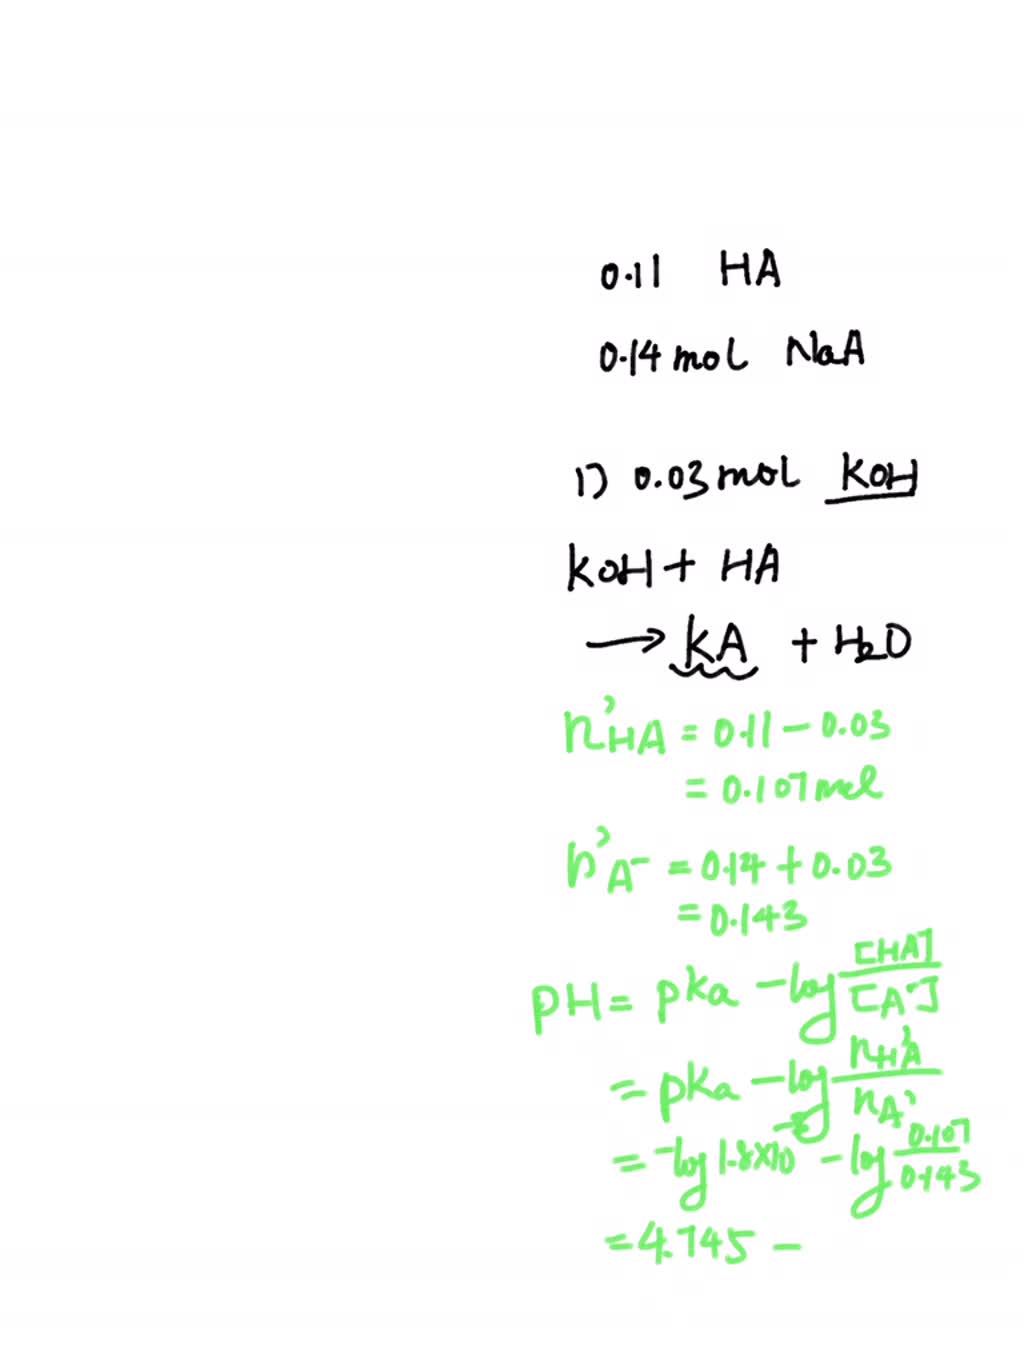 0.11 HA
0.14 mol NaA
1) 0.03 mol KOH
KOH + HA
→ KA + H₂O
n'HA = 0.11 - 0.03
= 0.107 mol
n'A⁻ = 0.14 + 0.03
= 0.143
pH = pKa - log [HA]/[A⁻]
= pKa - log nHA'/nA'
= -log 1.8×10⁻⁵ - log 0.107/0.143
= 4.745 -